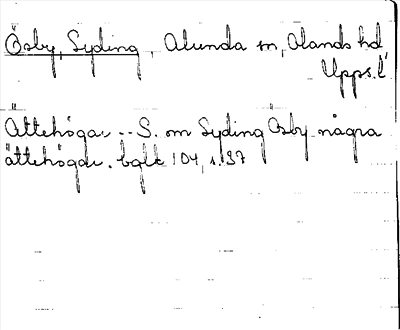 Ösby, Syding, Alunda sn, Olands hd,
Upps. l.
Ättehögar -- S. om Syding Ösby några
ättehögar. bglt 104, s. 37